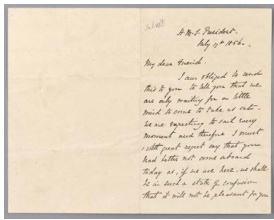 H.M.S. President.
July 17th 1886.
My dear
I am obliged to send
this to you to tell you that we
are only waiting for a little
wind to come to take us out.
We are expecting to sail every
moment and therefore I must
with great regret say that you
had better not come aboard
today as, if we are here, we shall
be in such a state of confusion
that it will not be pleasant for you